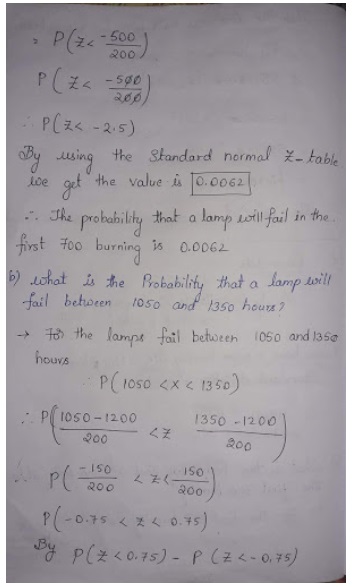 = P(Z< -500/200)
P(Z< -500/200)
∴ P(Z< -2.5)
By using the Standard normal Z-table
we get the value is 0.0062
∴ The probability that a lamp will fail in the
first 700 burning is 0.0062
b) what is the Probability that a lamp will
fail between 1050 and 1350 hours?
→ the lamps fail between 1050 and 1350
hours
P(1050 <x< 1350)
∴ P(1050-1200/200 <Z 1350-1200/200)
∴ P(-150/200 <Z< 150/200)
P(-0.75 < Z < 0.75)
By P(Z<0.75) - P(Z<-0.75)